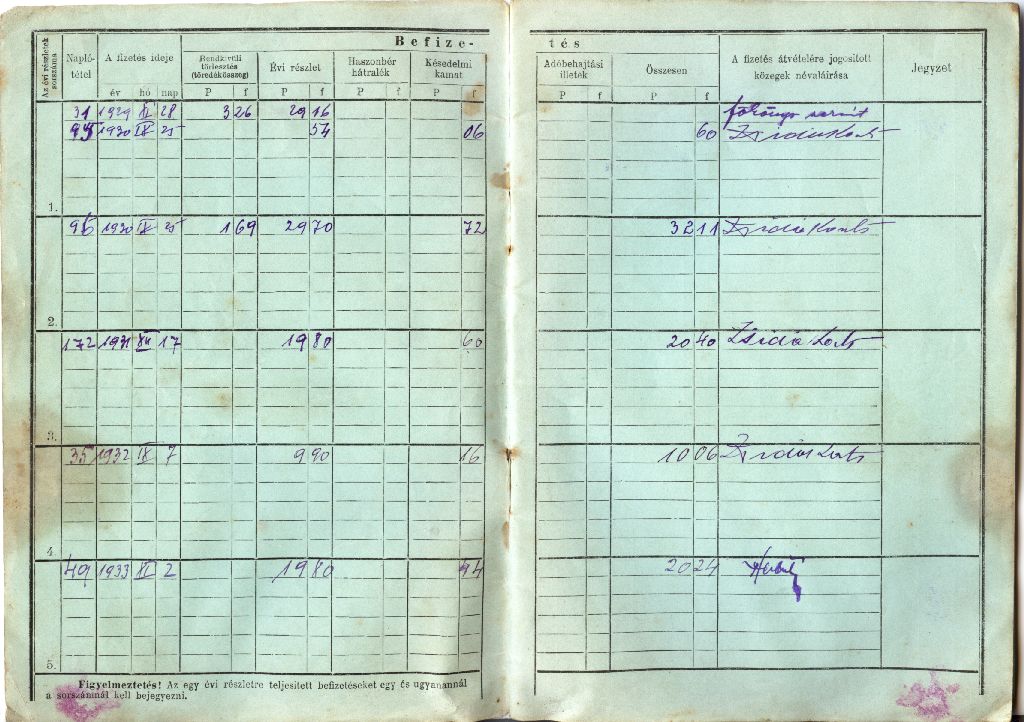 Befize- tés
Az évi részletek sorszáma
Napló-tétel
A fizetés ideje
év hó nap
Rendkivüli törlesztés (töredékösszeg)
P f
Évi részlet
P f
Haszonbér hátralék
P f
Késedelmi kamat
P f
Adóbehajtási illeték
P f
Összesen
P f
A fizetés átvételére jogosított közegek névaláírása
Jegyzet
31 1929 XI 28 3 26 29 16
95 1930 IX 25 54 06 60
1.
96 1930 IX 25 1 69 29 70 72 32 11
2.
172 1931 XII 17 19 80 60 20 40
3.
35 1932 IX 7 9 90 16 10 06
4.
49 1933 XI 2 19 80 20 24
5.
Figyelmeztetés! Az egy évi részletre teljesített befizetéseket egy és ugyanannál
a sorszámnál kell bejegyezni.